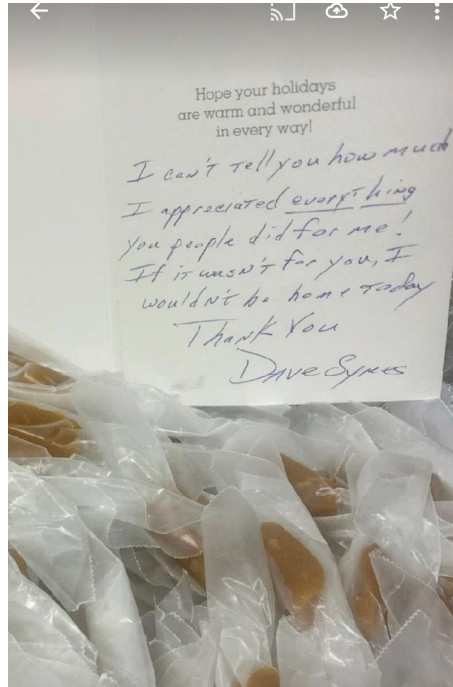 Hope your holidays
are warm and wonderful
in every way!
I can't tell you how much
I appreciated everything
you people did for me!
If it wasn't for you, I
wouldn't be home today
Thank You
Dave Sykes